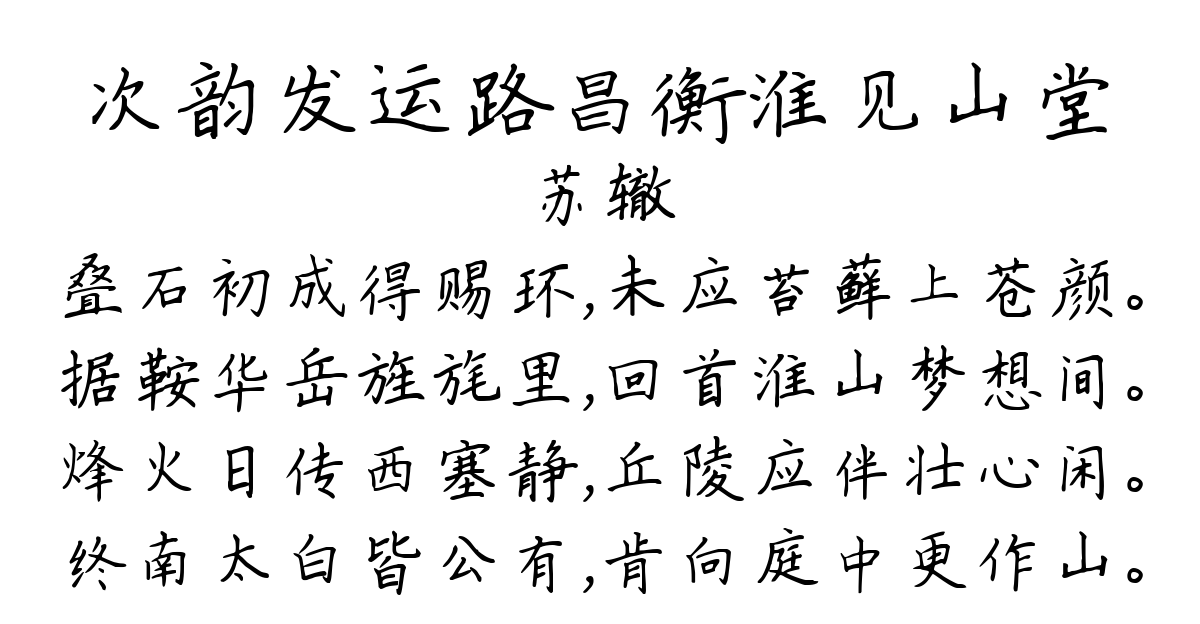 次韵发运路昌衡淮见山堂
苏辙
叠石初成得赐环,未应苔藓上苍颜。
据鞍华岳旌旄里,回首淮山梦想间。
烽火日传西塞静,丘陵应伴壮心闲。
终南太白皆公有,肯向庭中更作山。